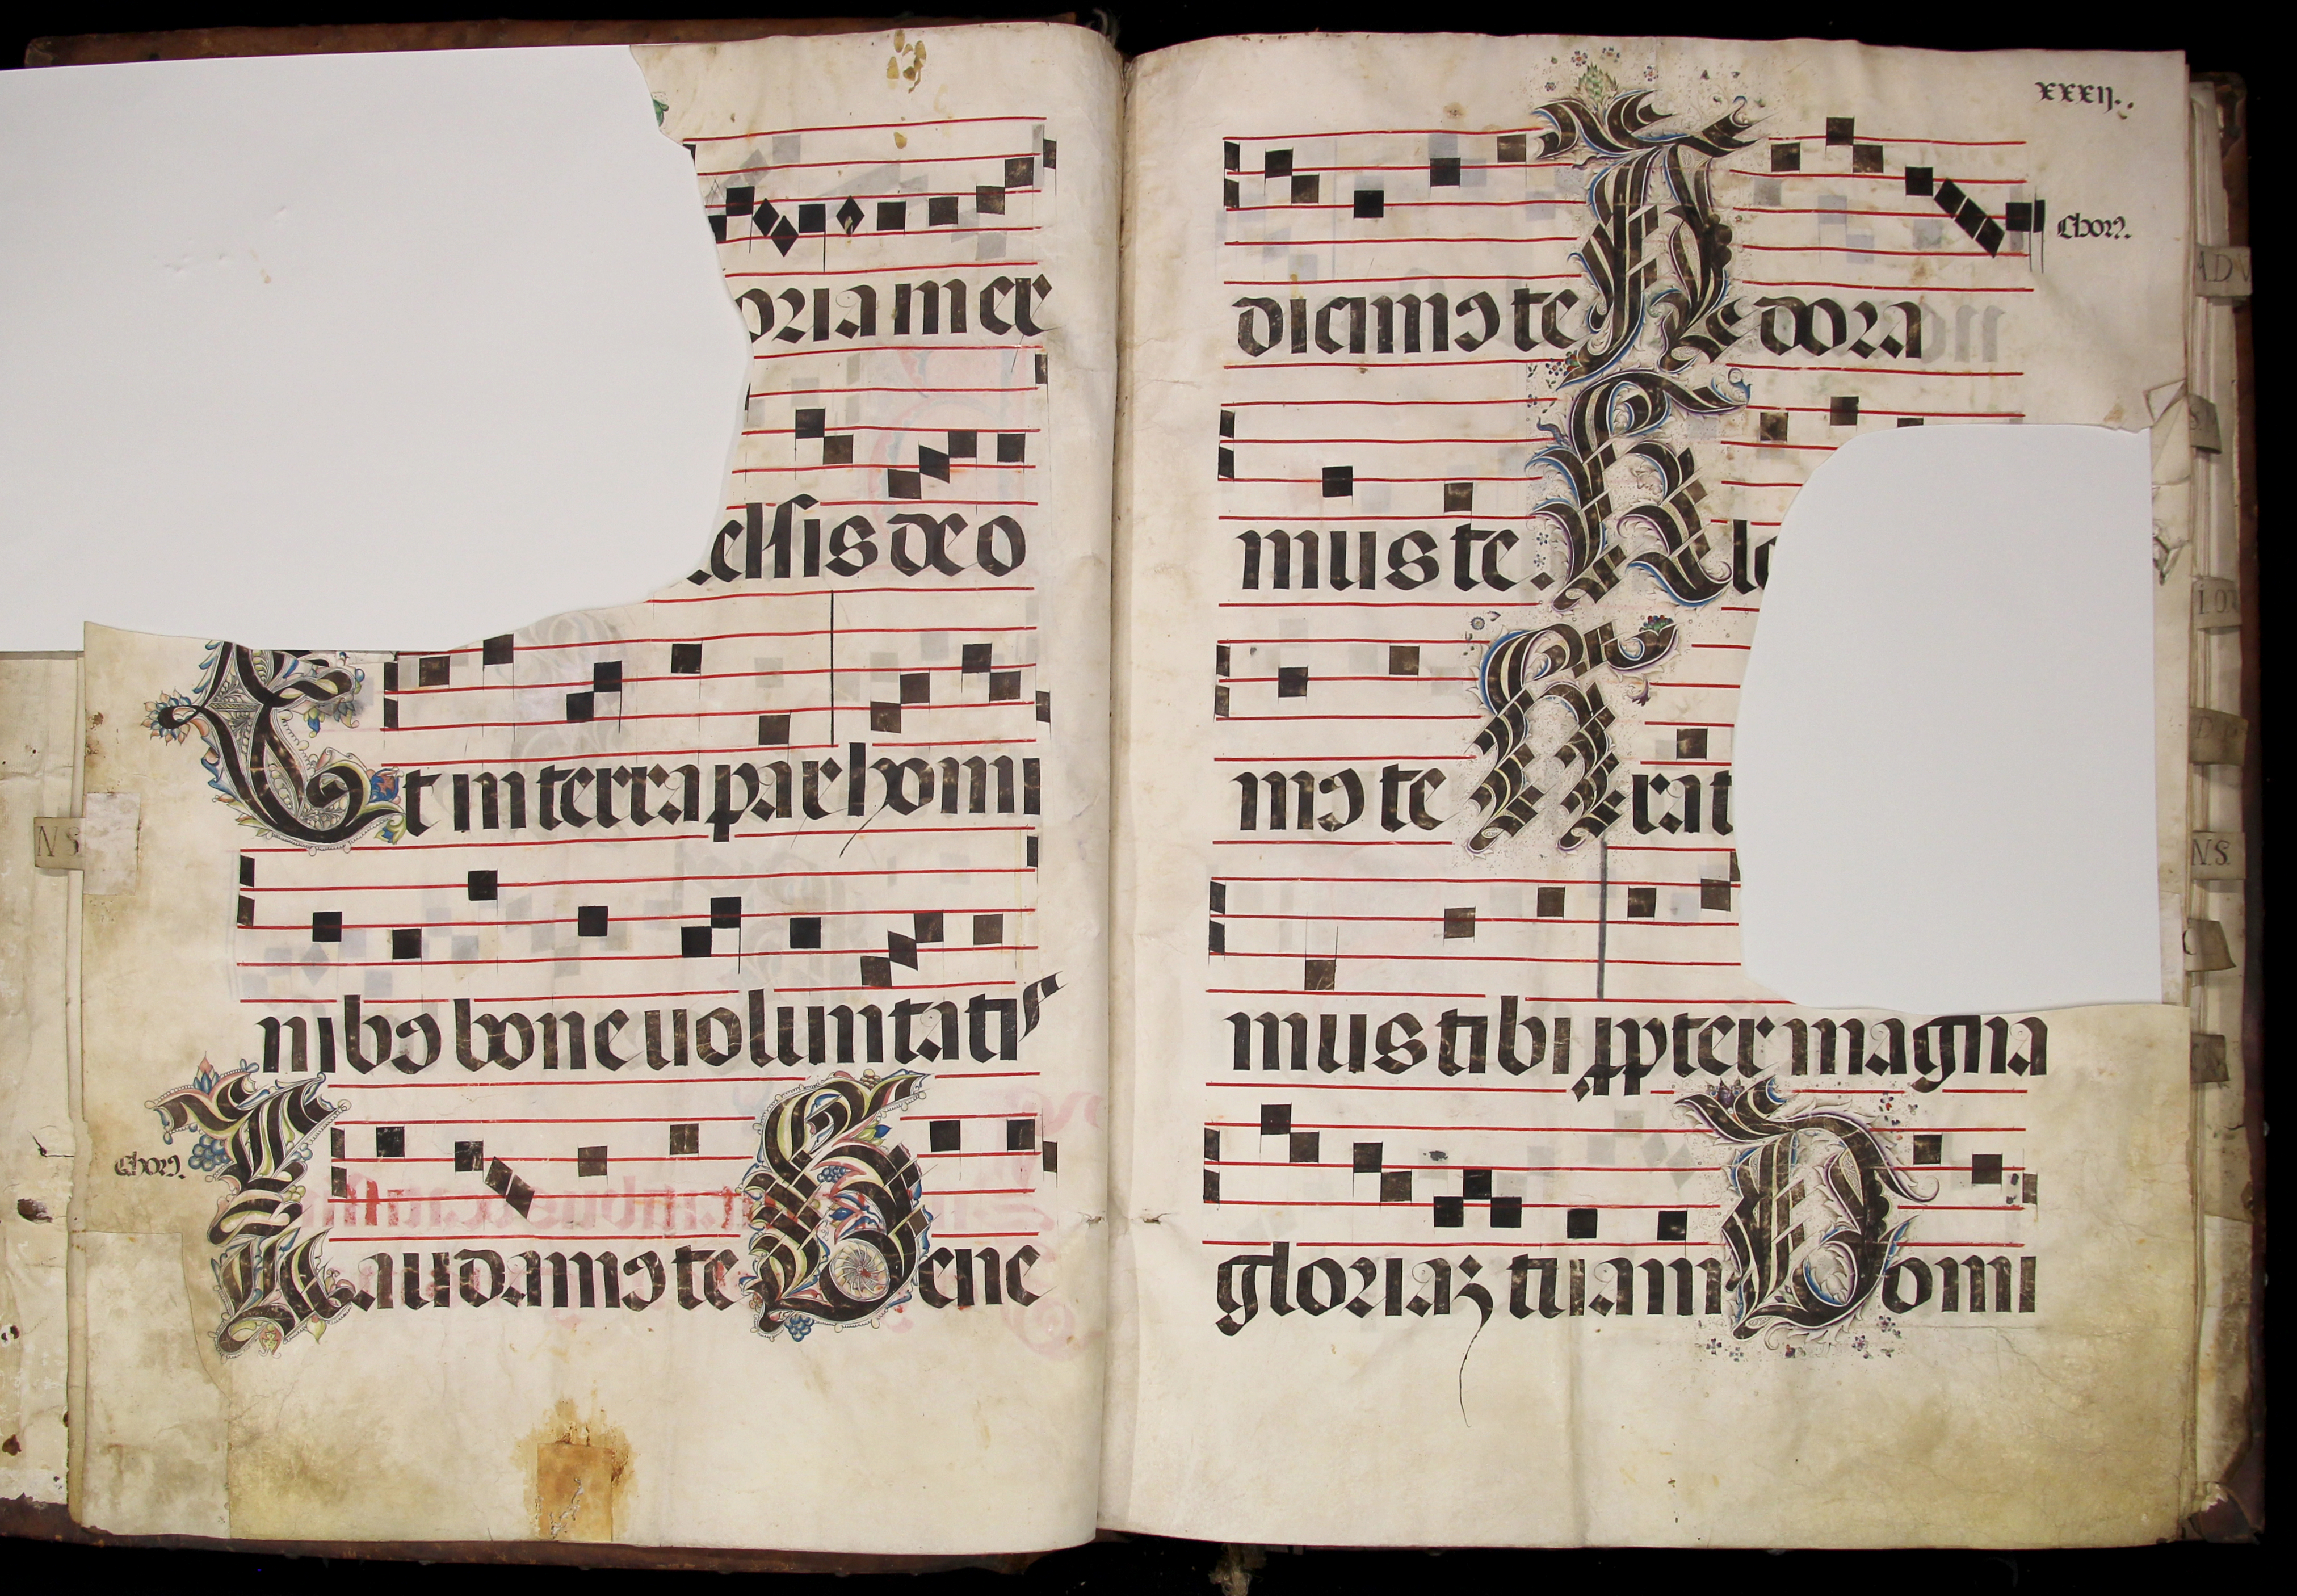 oria in ex
celsis deo
Et in terra pax homi
nibꝰ bone uoluntatis
Chorꝰ.
Laudamꝰ te Bene
xxxij.
Chorꝰ.
dicimꝰ te Adora
mus te.
mꝰ te Grat
mus tibi ꝓpter magna
gloriaꝫ tuam Domi
N S
N.S.